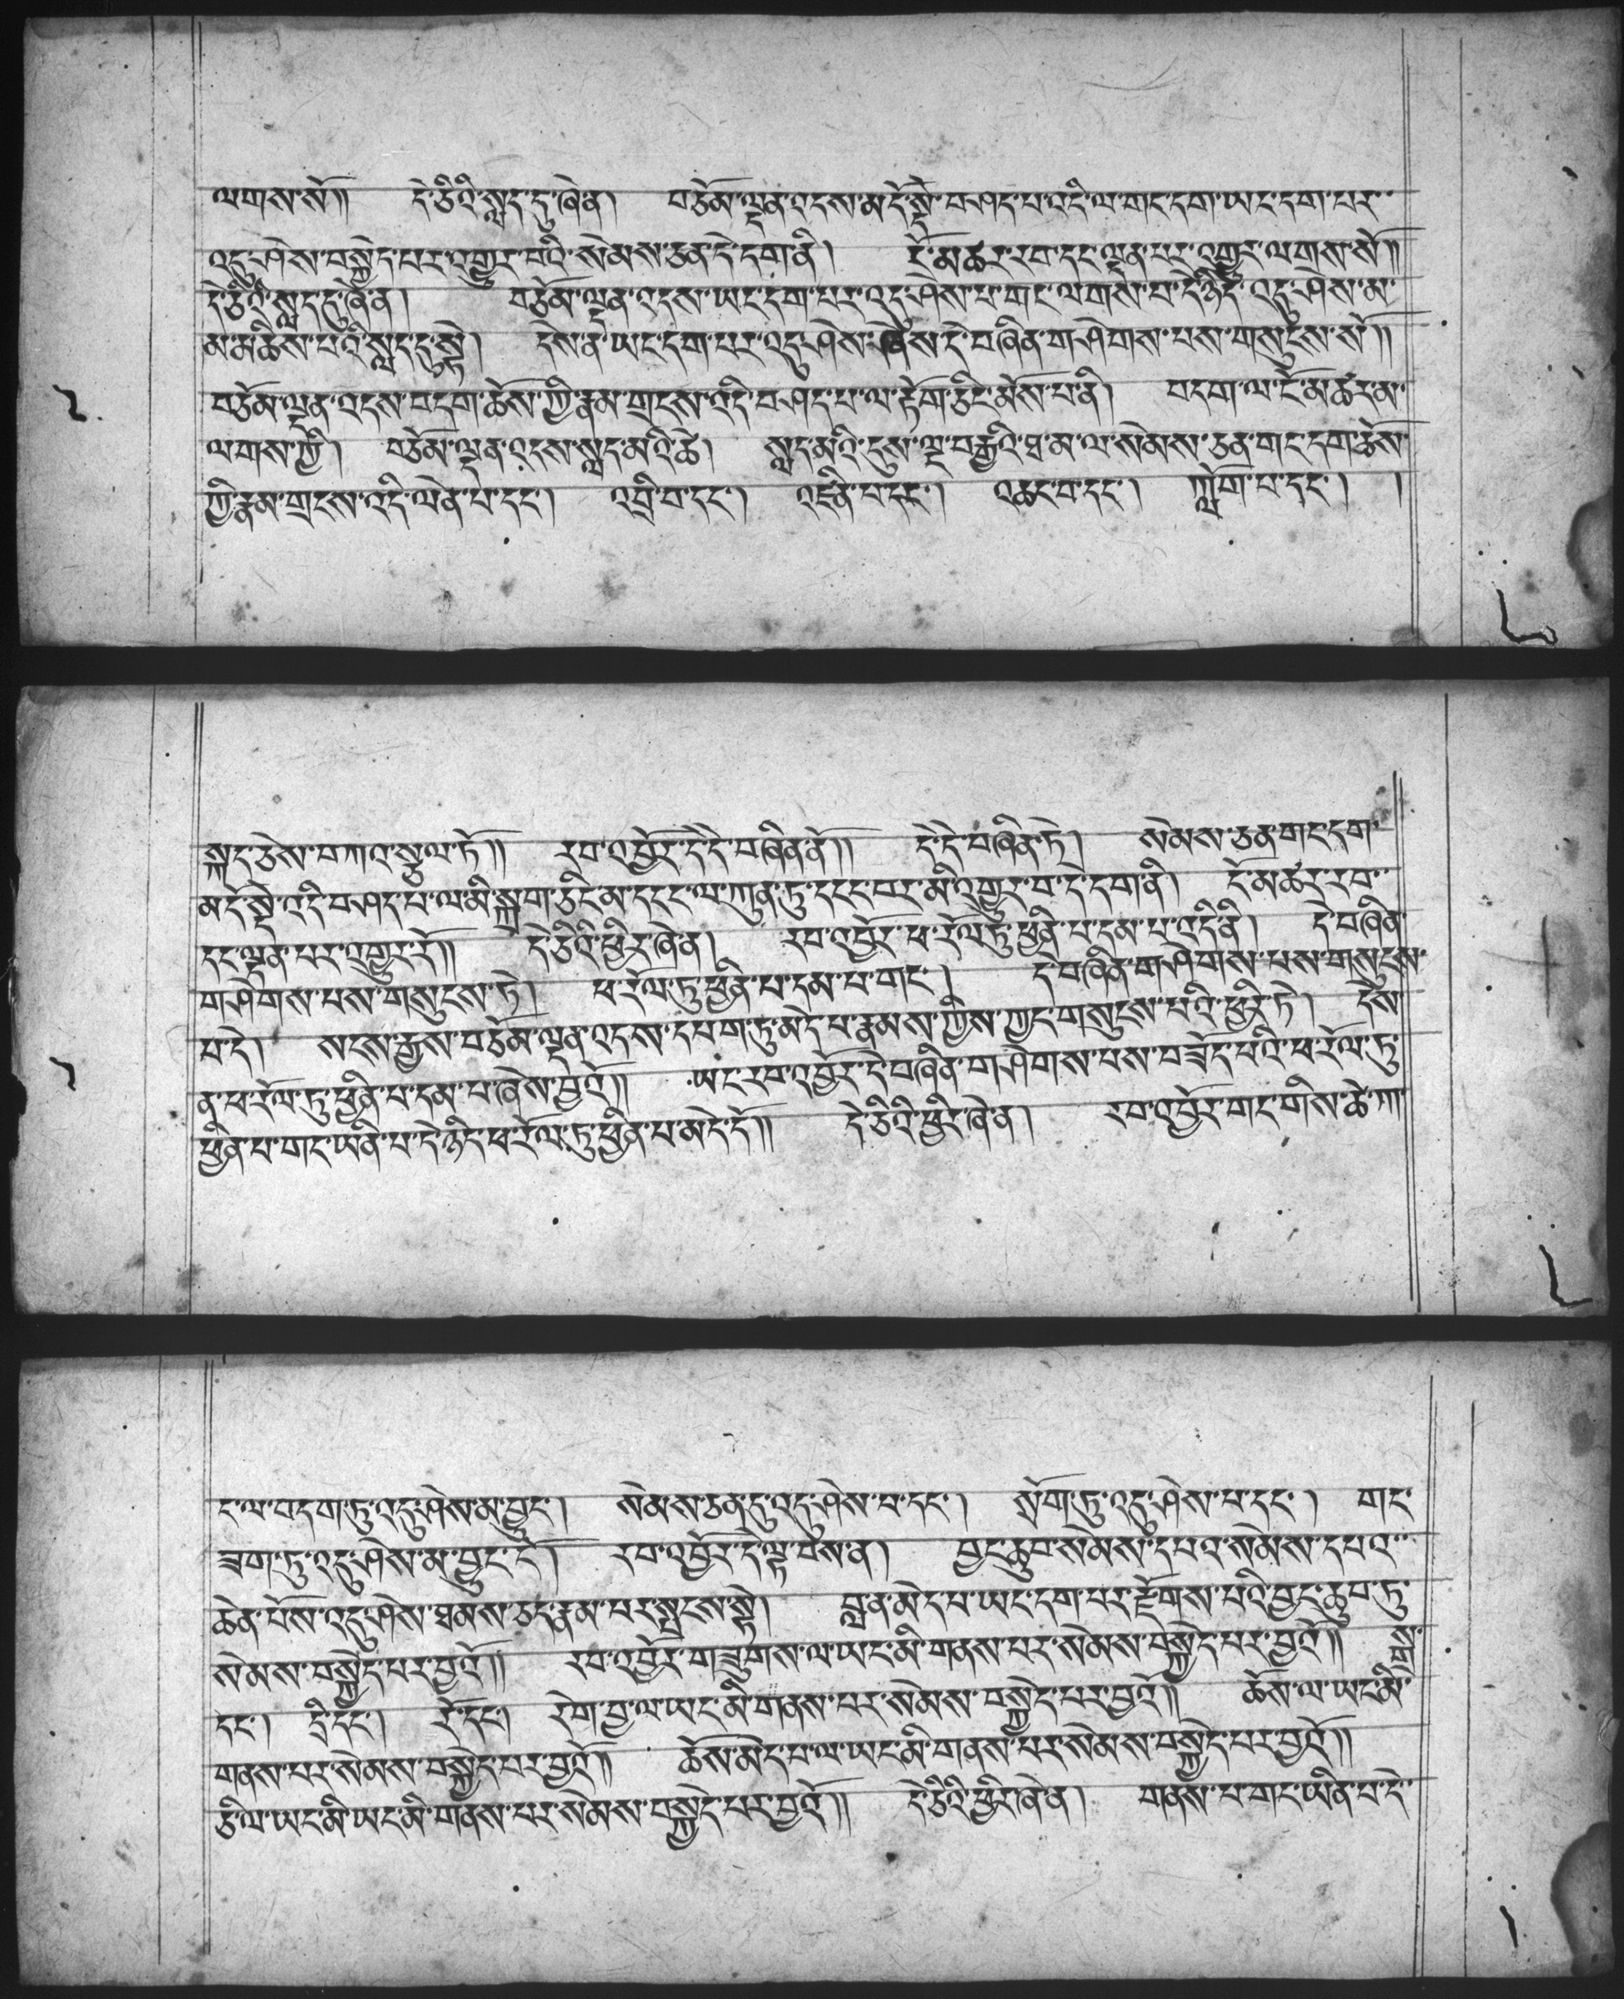 ལགས་སོ༎ དེ་ཅིའི་སླད་དུ་ཞེ་ན། བཅོམ་ལྡན་འདས་མདོ་སྡེ་བཤད་པ་འདི་ལ་གང་དག་ཡང་དག་པར་
འདུ་ཤེས་བསྐྱེད་པར་འགྱུར་བའི་སེམས་ཅན་དེ་དག་ནི། ངོ་མཚར་རབ་དང་ལྡན་པར་འགྱུར་ལགས་སོ༎
དེ་ཅིའི་སླད་དུ་ཞེ་ན། བཅོམ་ལྡན་འདས་ཡང་དག་པར་འདུ་ཤེས་པ་གང་ལགས་པ་དེ་ཉིད་འདུ་ཤེས་མ་
མ་མཆིས་པའི་སླད་དུ་སྟེ། དེས་ན་ཡང་དག་པར་འདུ་ཤེས་ཞེས་དེ་བཞིན་གཤེགས་པས་གསུངས་སོ༎
བཅོམ་ལྡན་འདས་བདག་ཆོས་ཀྱི་རྣམ་གྲངས་འདི་བཤད་པ་ལ་རྟོག་ཅིང་མོས་པ་ནི། བདག་ལ་ངོ་མཚར་མ་
ལགས་ཀྱི། བཅོམ་ལྡན་འདས་སླད་མའི་ཚེ། སླད་མའི་དུས་ལྔ་བརྒྱའི་ཐ་མ་ལ་སེམས་ཅན་གང་དག་ཆོས་
ཀྱི་རྣམ་གྲངས་འདི་ལེན་པ་དང་། འབྲི་བ་དང་། འཛིན་པ་དང་། འཆང་བ་དང་། ཀློག་པ་དང་། །
སྐད་ཅེས་བཀའ་སྩལ་ཏོ༎ རབ་འབྱོར་དེ་དེ་བཞིན་ནོ༎ དེ་དེ་བཞིན་ཏེ། སེམས་ཅན་གང་དག་
མདོ་སྡེ་འདི་བཤད་པ་ལ་མི་སྐྲག་ཅིང་མ་དངང་ལ་ཀུན་ཏུ་དངང་བར་མི་འགྱུར་བ་དེ་དག་ནི། ངོ་མཚར་རབ་
དང་ལྡན་པར་འགྱུར་རོ༎ དེ་ཅིའི་ཕྱིར་ཞེ་ན། རབ་འབྱོར་ཕ་རོལ་ཏུ་ཕྱིན་པ་དམ་པ་འདི་ནི། དེ་བཞིན་
གཤེགས་པས་གསུངས་ཏེ། ཕ་རོལ་ཏུ་ཕྱིན་པ་དམ་པ་གང་། དེ་བཞིན་གཤེགས་པས་གསུངས་
པ་དེ། སངས་རྒྱས་བཅོམ་ལྡན་འདས་དཔག་ཏུ་མེད་པ་རྣམས་ཀྱིས་ཀྱང་གསུངས་པའི་ཕྱིར་ཏེ། དེས་
ན་ཕ་རོལ་ཏུ་ཕྱིན་པ་དམ་པ་ཞེས་བྱའོ༎ ཡང་རབ་འབྱོར་དེ་བཞིན་གཤེགས་པས་བཟོད་པའི་ཕ་རོལ་ཏུ་
ཕྱིན་པ་གང་ཡིན་པ་དེ་ཉིད་ཕ་རོལ་ཏུ་ཕྱིན་པ་མེད་དོ༎ དེ་ཅིའི་ཕྱིར་ཞེ་ན། རབ་འབྱོར་གང་གིས་ཚེ་ཀ་
ང་ལ་བདག་ཏུ་འདུ་ཤེས་མ་བྱུང་། སེམས་ཅན་དུ་འདུ་ཤེས་པ་དང་། སྲོག་ཏུ་འདུ་ཤེས་པ་དང་། གང་
ཟག་ཏུ་འདུ་ཤེས་མ་བྱུང་ངོ་། རབ་འབྱོར་དེ་ལྟ་བས་ན། བྱང་ཆུབ་སེམས་དཔའ་སེམས་དཔའ་
ཆེན་པོས་འདུ་ཤེས་ཐམས་ཅད་རྣམ་པར་སྤངས་སྟེ། བླ་ན་མེད་པ་ཡང་དག་པར་རྫོགས་པའི་བྱང་ཆུབ་ཏུ་
སེམས་བསྐྱེད་པར་བྱའོ༎ རབ་འབྱོར་གཟུགས་ལ་ཡང་མི་གནས་པར་སེམས་བསྐྱེད་པར་བྱའོ༎ སྒྲ་
དང་། དྲི་དང་། རོ་དང་། རེག་བྱ་ལ་ཡང་མི་གནས་པར་སེམས་བསྐྱེད་པར་བྱའོ༎ ཆོས་ལ་ཡང་མི་
གནས་པར་སེམས་བསྐྱེད་པར་བྱའོ༎ ཆོས་མེད་པ་ལ་ཡང་མི་གནས་པར་སེམས་བསྐྱེད་པར་བྱའོ༎
ཅི་ལ་ཡང་མི་ཡང་མི་གནས་པར་སེམས་བསྐྱེད་པར་བྱའོ༎ དེ་ཅིའི་ཕྱིར་ཞེ་ན། གནས་པ་གང་ཡིན་པ་དེ་